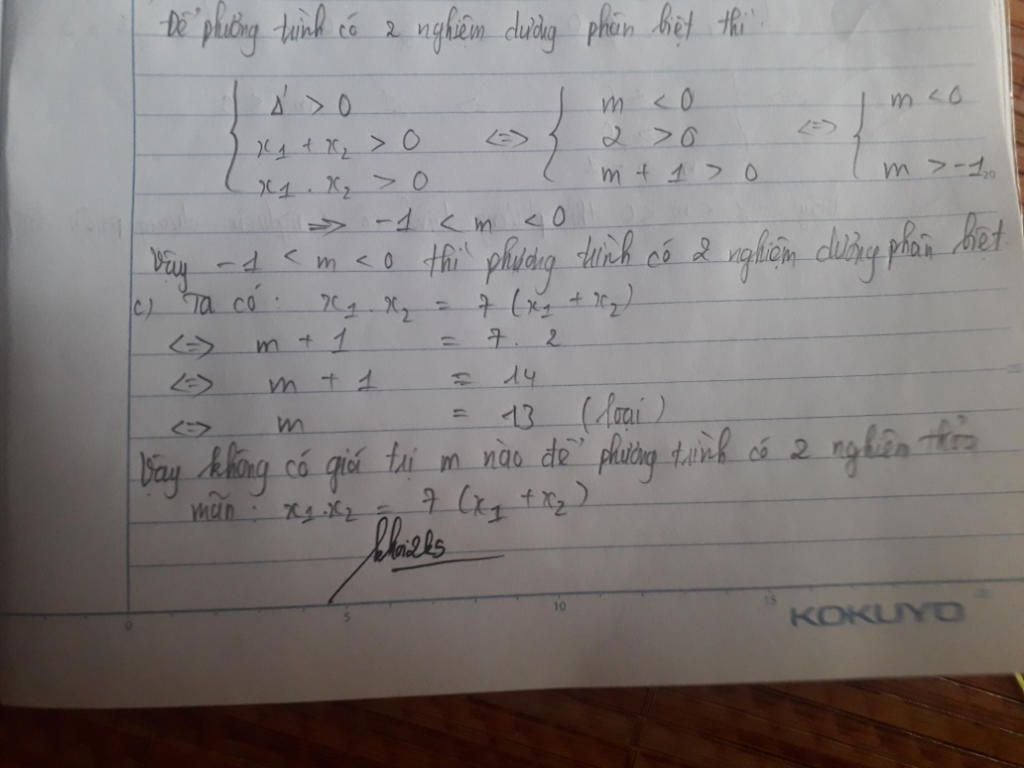 Để phương trình có 2 nghiệm dương phân biệt thì
{ Δ' > 0 <=> { m < 0 <=> { m < 0
x₁ + x₂ > 0 2 > 0
x₁ . x₂ > 0 m + 1 > 0 m > -1
=> -1 < m < 0
Vậy -1 < m < 0 thì phương trình có 2 nghiệm dương phân biệt
c) Ta có: x₁ . x₂ = 7 (x₁ + x₂)
<=> m + 1 = 7 . 2
<=> m + 1 = 14
<=> m = 13 (loại)
Vậy không có giá trị m nào để phương trình có 2 nghiên thỏa
mãn: x₁.x₂ = 7 (x₁ + x₂)
khoi2k5
0 5 10 15
KOKUYO